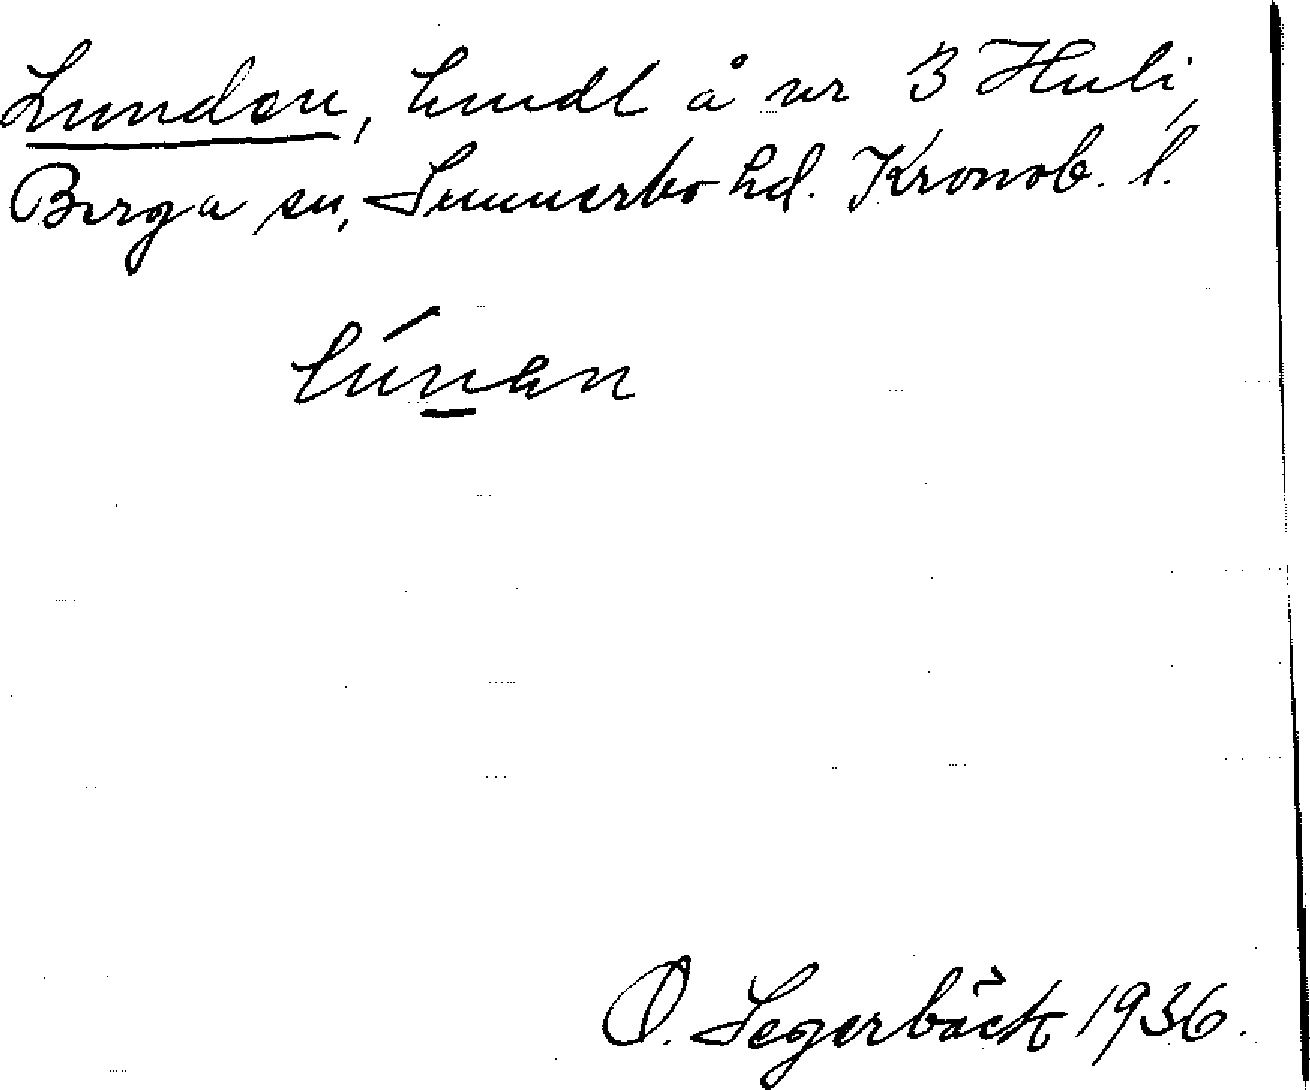 Lunden, hmdl å nr 3 Huli,
Berga sn, Sunnerbo hd. Kronob. l.
lúnen
O. Segerbäck 1936.